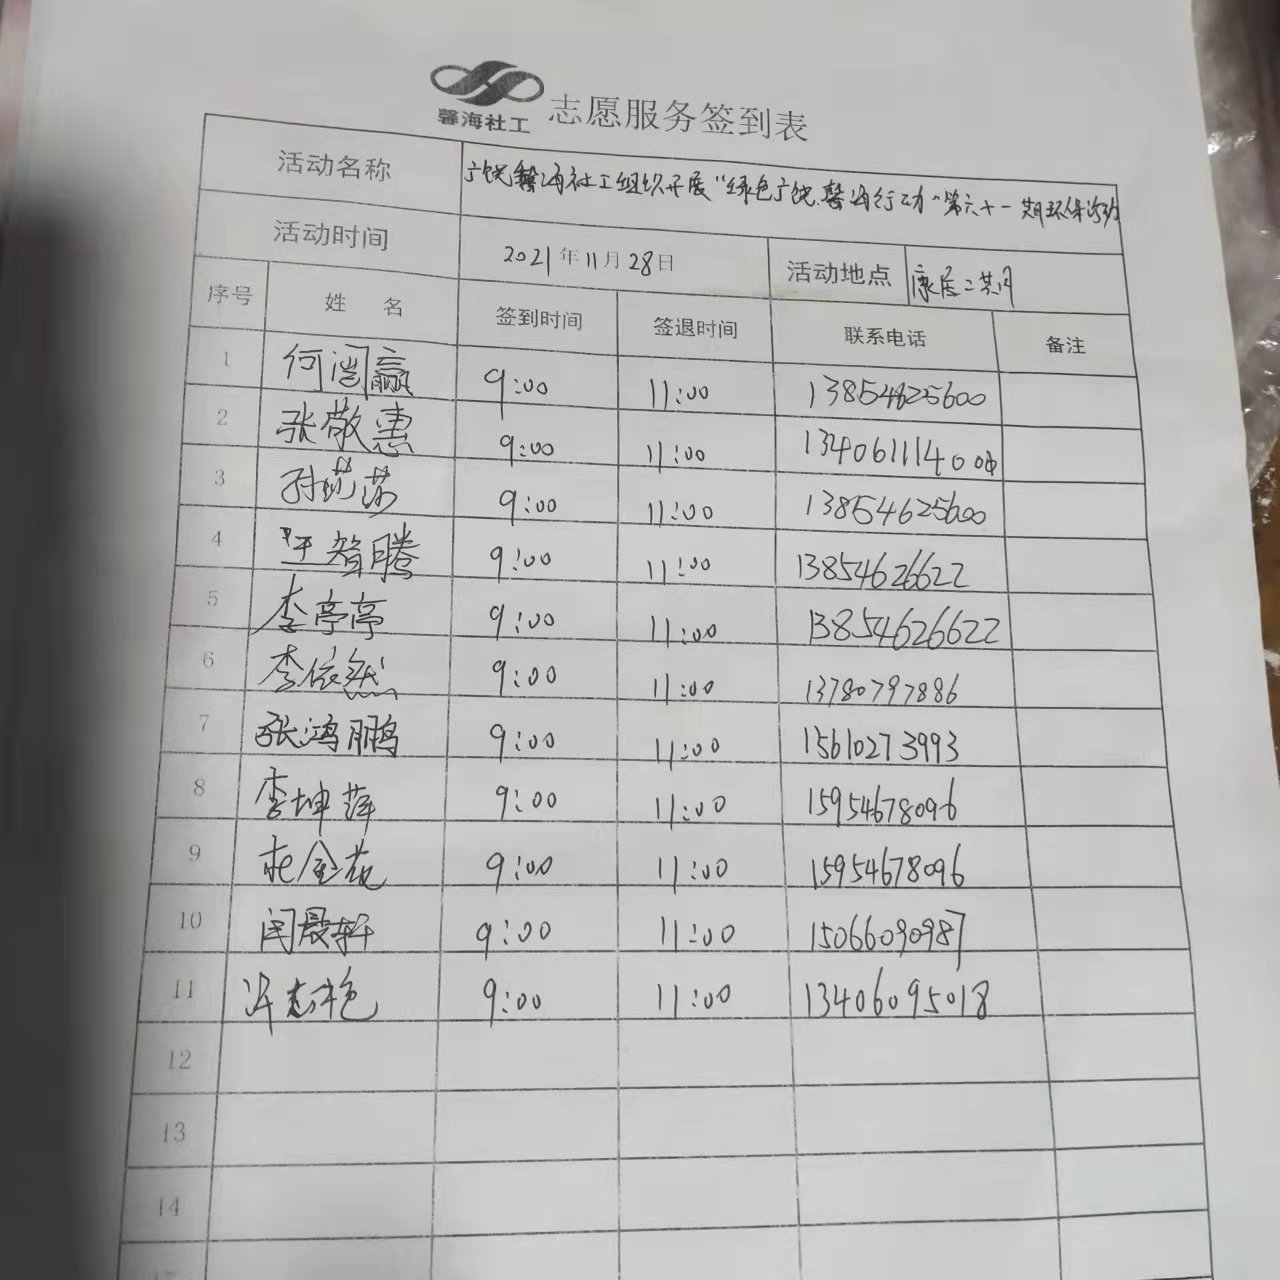 馨海社工 志愿服务签到表
活动名称 广饶馨海社工组织开展“绿色广饶.馨海行动”第六十一期环保活动
活动时间 2021年11月28日 活动地点 康居二共同
序号 姓 名 签到时间 签退时间 联系电话 备注
1 何闰赢 9:00 11:00 13854625600
2 张敬惠 9:00 11:00 134061114
3 孙 莎 9:00 11:00 13854625600
4 王智腾 9:00 11:00 13854626622
5 李亭亭 9:00 11:00 13854626622
6 李依然 9:00 11:00 13780797886
7 张鸿鹏 9:00 11:00 15610273993
8 李坤萍 9:00 11:00 15954678096
9 金花 9:00 11:00 15954678096
10 闫晟轩 9:00 11:00 15066090987
11 许志艳 9:00 11:00 13406095018
12
13
14